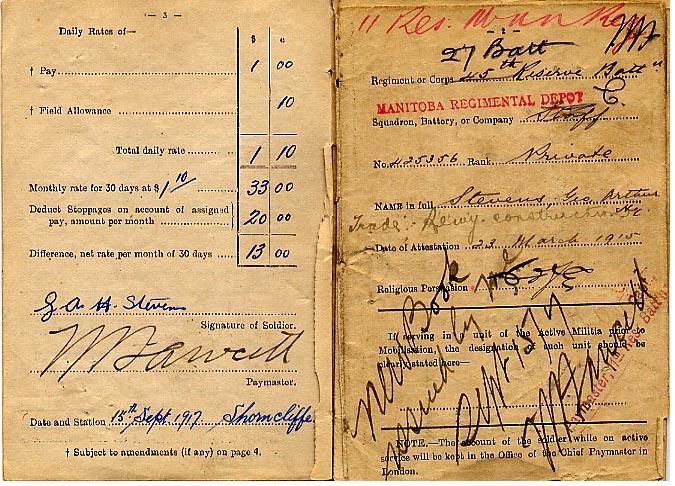 — 3 —
Daily Rates of—
$ c
† Pay 1 00
† Field Allowance 10
Total daily rate 1 10
Monthly rate for 30 days at $ 1 10 33 00
Deduct Stoppages on account of assigned
pay, amount per month 20 00
Difference, net rate per month of 30 days 13 00
G. A. H. Stevens
Signature of Soldier.
Paymaster.
Date and Station 15th Sept 1917 Shorncliffe
† Subject to amendments (if any) on page 4.
11 Res.
— 2 —
27 Batt
Regiment or Corps 45th Reserve Batt
MANITOBA REGIMENTAL DEPOT
Squadron, Battery, or Company Staff
C
No. 425356 Rank Private
NAME in full Stevens, Geo Arthur
Trade:- construction
Date of Attestation 23 March 1915
Religious Persuasion
If serving in a unit of the Active Militia prior to
Mobilisation, the designation of such unit should be
clearly stated here—
New Book
issued by me
Sept 15/17
Paymaster
NOTE.—The account of the soldier while on active
service will be kept in the Office of the Chief Paymaster in
London.